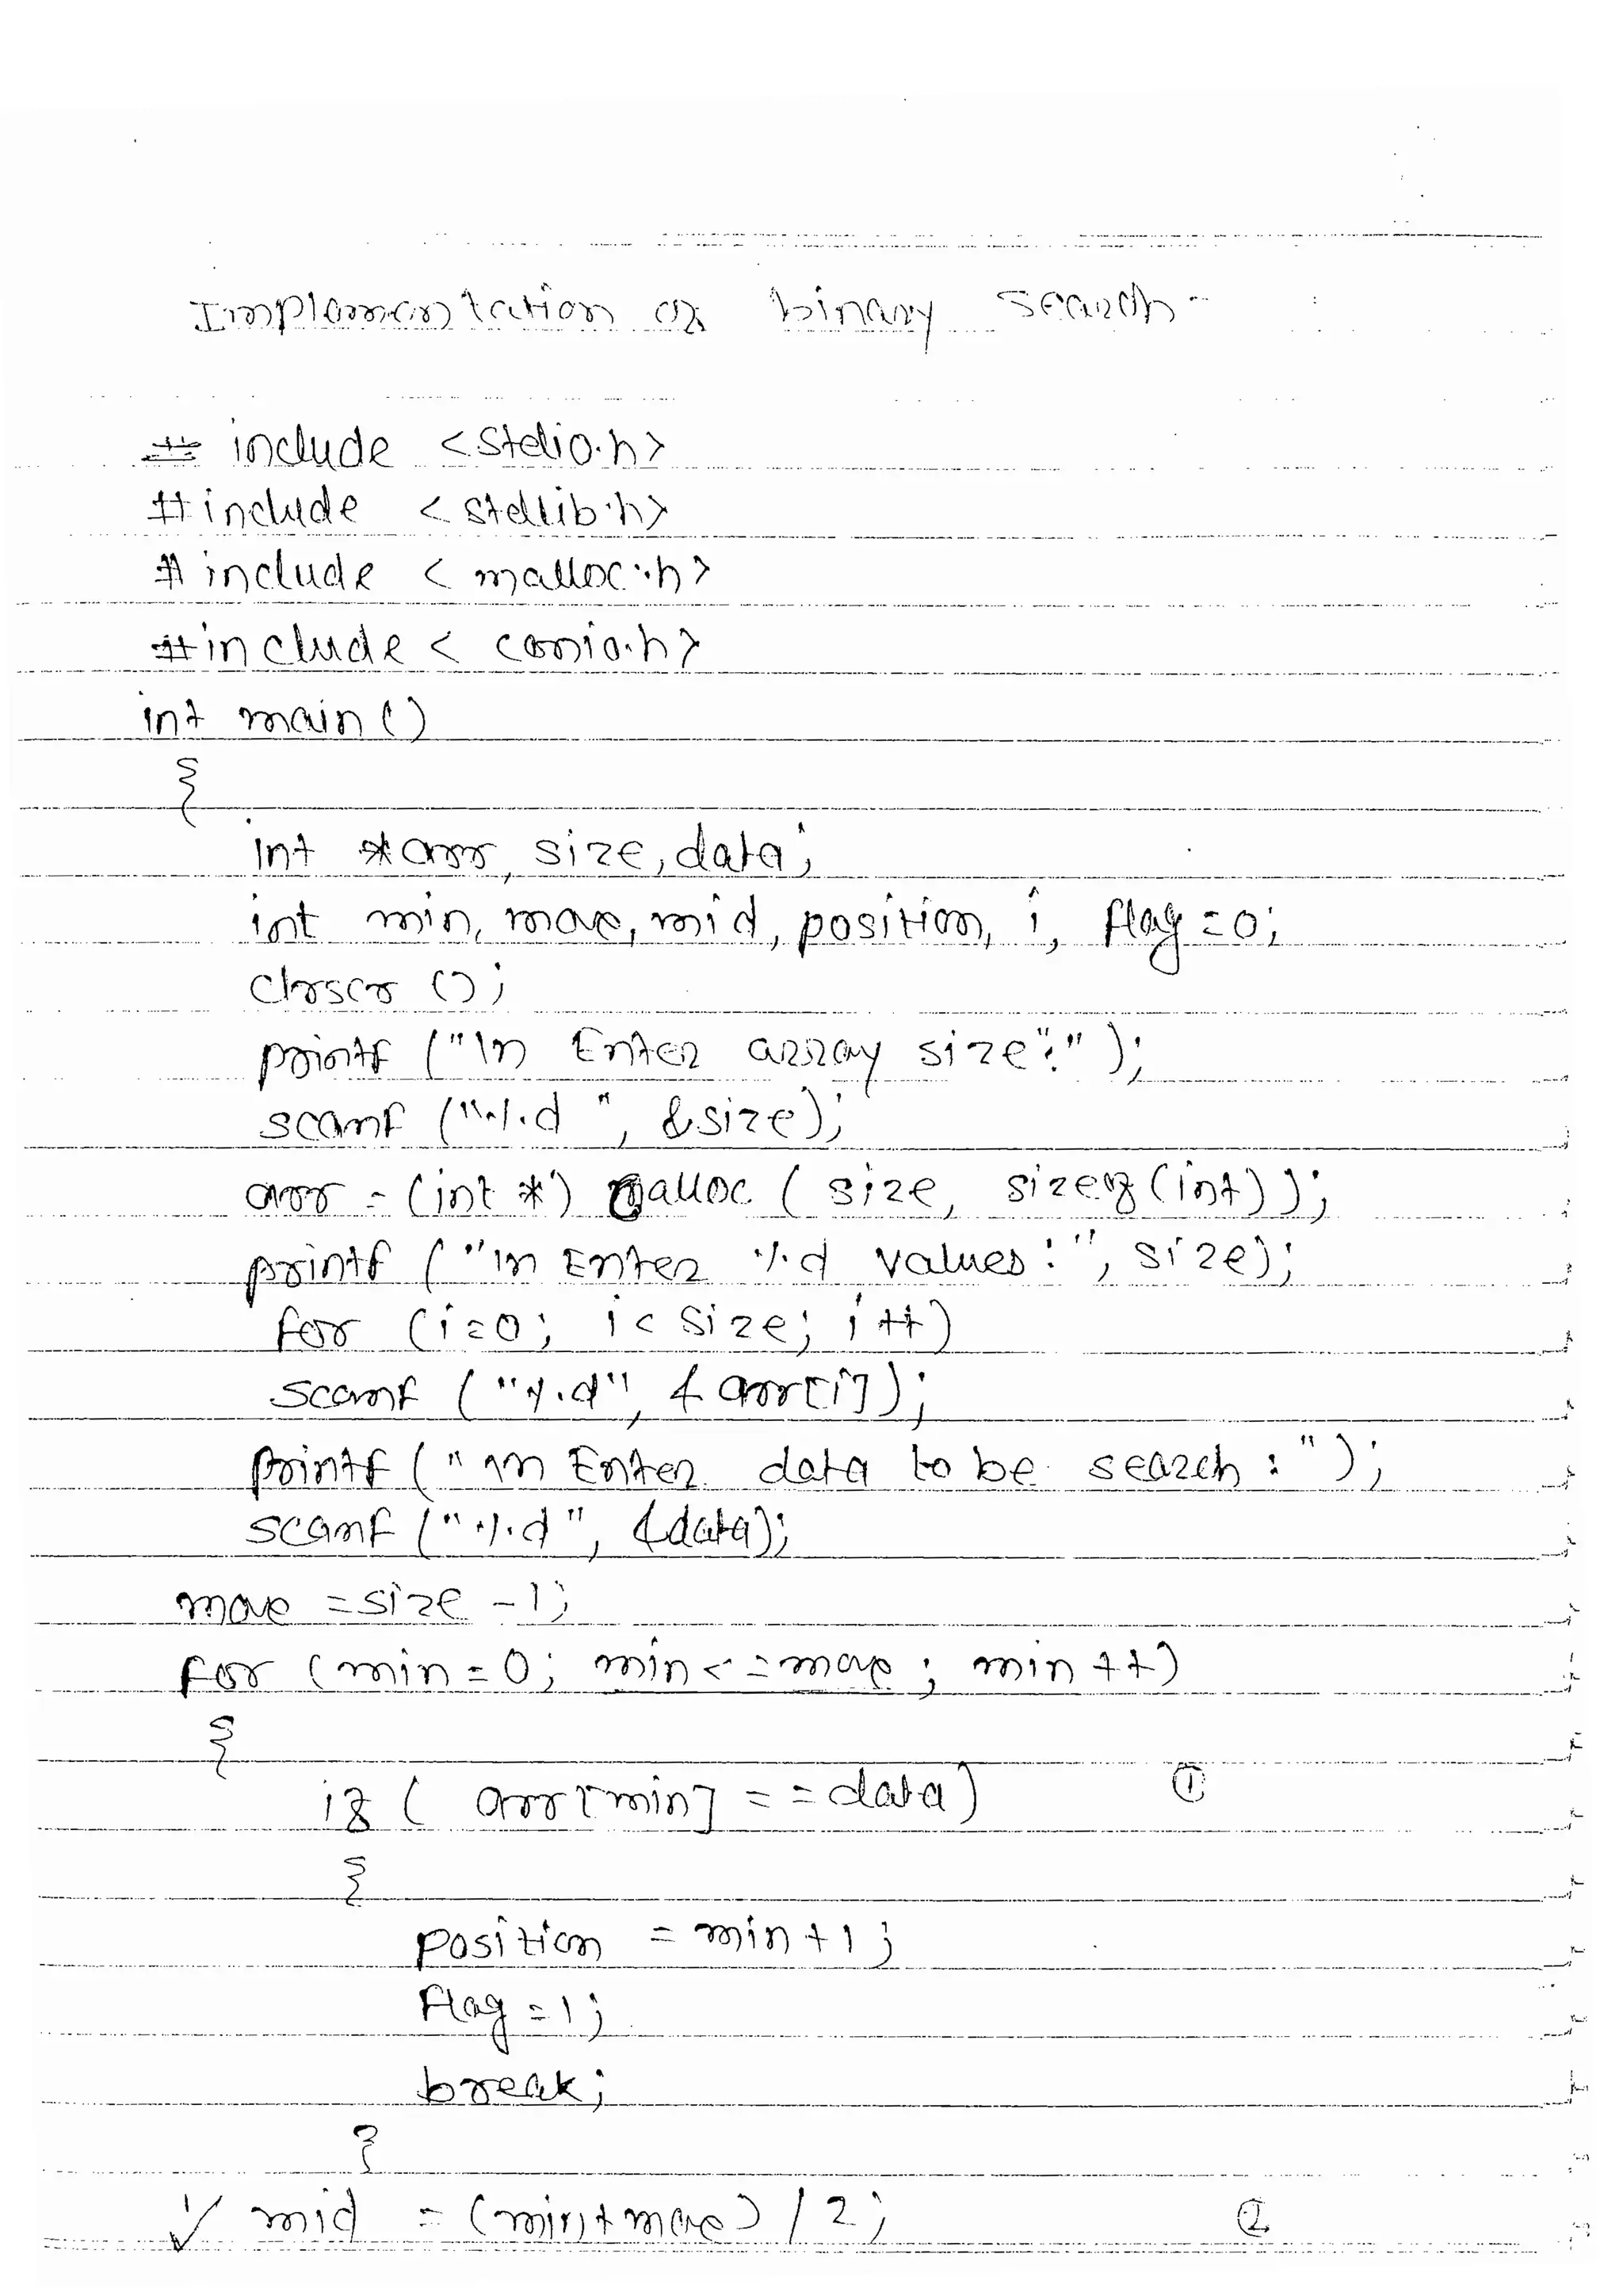 Implementation of binary search
# include <stdio.h>
#include <stdlib.h>
#include <malloc.h>
#include < conio.h>
int main()
{
int *arr, size, data;
int min, max, mid, position, i, flag=0;
clrscr ();
printf ("\n Enter array size:");
scanf ("%d ", &size);
arr = (int *) calloc ( size, sizeof (int));
printf ("\n Enter %d values:", size);
for (i=0; i< size; i++)
scanf ("%d", &arr[i]);
printf ("\n Enter data to be search :");
scanf ("%d", &data);
max =size -1;
for (min=0; min<=max ; min++)
{
if ( arr[min] ==data) ①
{
position = min+1;
flag=1;
break;
}
✓ mid = (min+max) / 2; ②